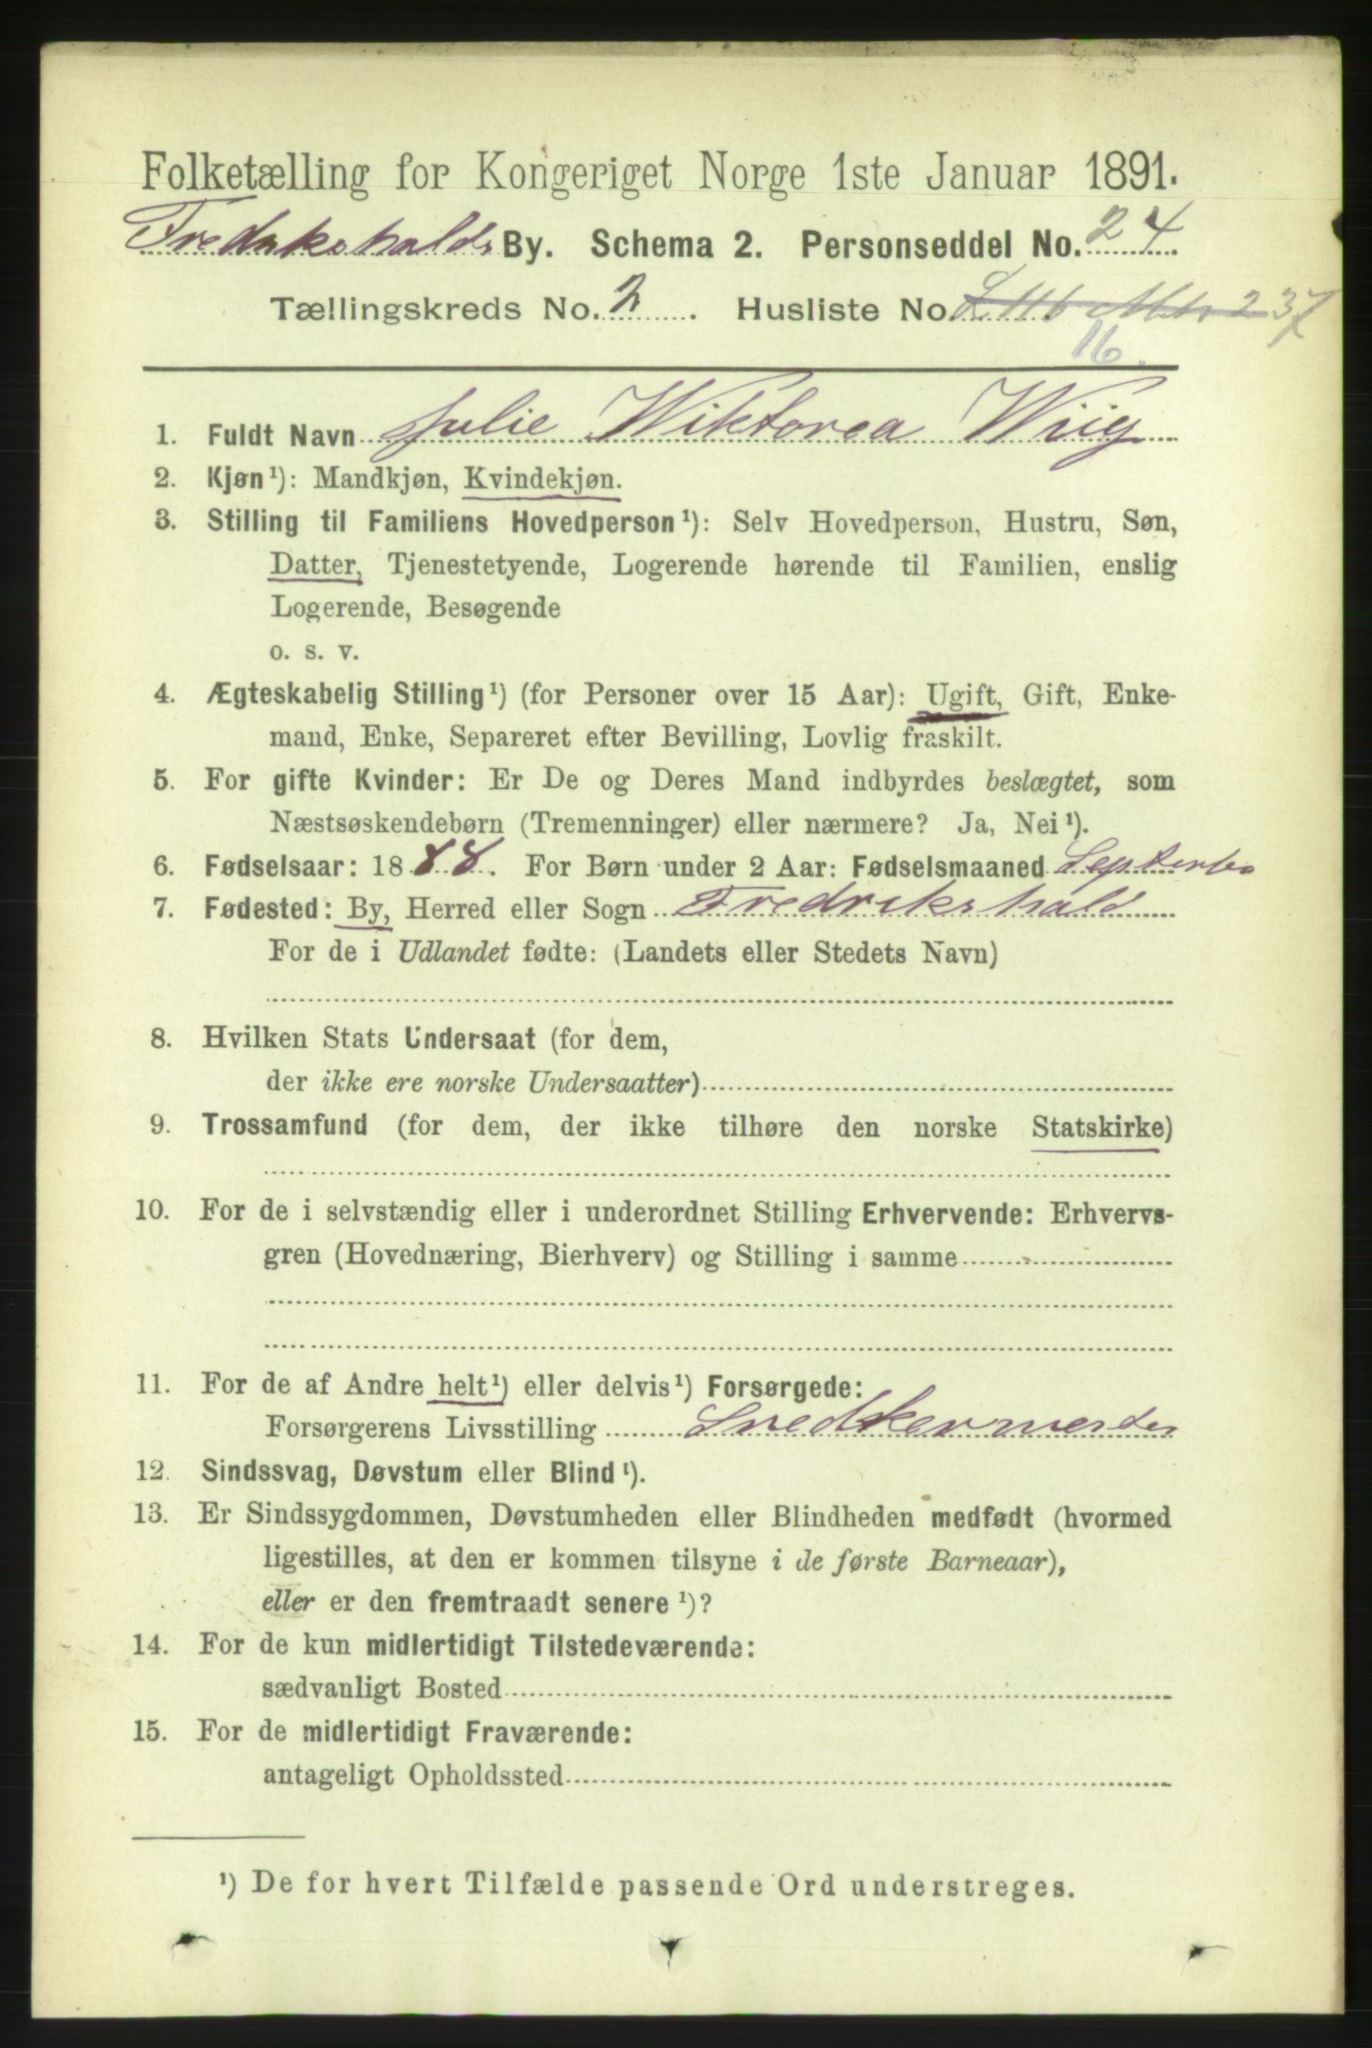 Folketælling for Kongeriget Norge 1ste Januar 1891.
Fredrikshalds By. Schema 2. Personseddel No. 24
Tællingskreds No. 2. Husliste No. 237
16.
1. Fuldt Navn Julie Wiktorea Wiig
2. Kjøn¹): Mandkjøn, Kvindekjøn.
3. Stilling til Familiens Hovedperson¹): Selv Hovedperson, Hustru, Søn,
Datter, Tjenestetyende, Logerende hørende til Familien, enslig
Logerende, Besøgende
o. s. v.
4. Ægteskabelig Stilling¹) (for Personer over 15 Aar): Ugift, Gift, Enke-
mand, Enke, Separeret efter Bevilling, Lovlig fraskilt.
5. For gifte Kvinder: Er De og Deres Mand indbyrdes beslægtet, som
Næstsøskendebørn (Tremenninger) eller nærmere? Ja, Nei¹).
6. Fødselsaar: 1888. For Børn under 2 Aar: Fødselsmaaned September
7. Fødested: By, Herred eller Sogn Fredrikshald
For de i Udlandet fødte: (Landets eller Stedets Navn)
8. Hvilken Stats Undersaat (for dem,
der ikke ere norske Undersaatter)
9. Trossamfund (for dem, der ikke tilhøre den norske Statskirke)
10. For de i selvstændig eller i underordnet Stilling Erhvervende: Erhvervs-
gren (Hovednæring, Bierhverv) og Stilling i samme
11. For de af Andre helt¹) eller delvis¹) Forsørgede:
Forsørgerens Livsstilling Snedkermester
12. Sindssvag, Døvstum eller Blind¹).
13. Er Sindssygdommen, Døvstumheden eller Blindheden medfødt (hvormed
ligestilles, at den er kommen tilsyne i de første Barneaar),
eller er den fremtraadt senere¹)?
14. For de kun midlertidigt Tilstedeværende:
sædvanligt Bosted
15. For de midlertidigt Fraværende:
antageligt Opholdssted
¹) De for hvert Tilfælde passende Ord understreges.